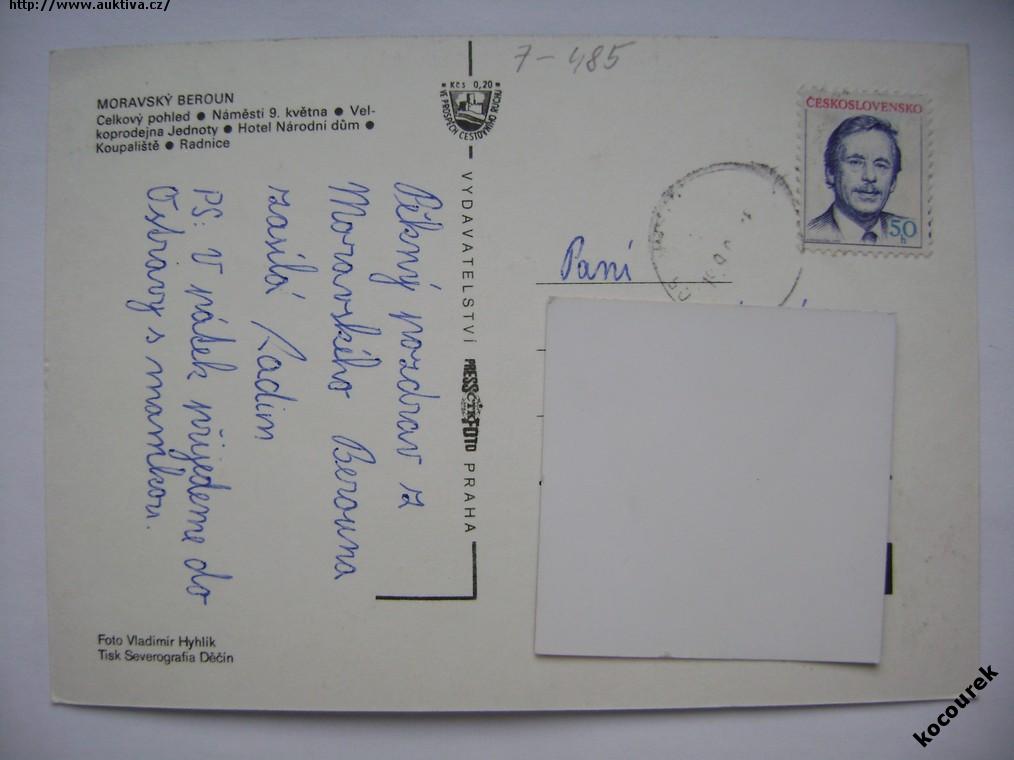 http://www.auktiva.cz/
7-485
MORAVSKÝ BEROUN
Celkový pohled ● Náměstí 9. května ● Vel-
koprodejna Jednoty ● Hotel Národní dům ●
Koupaliště ● Radnice
Kčs 0,20
VE PROSPĚCH CESTOVNÍHO RUCHU
ČESKOSLOVENSKO
50
h
Pěkný pozdrav z
Moravského Berouna
zasílá Radim
PS: V pátek přijedeme do
Ostravy s mamkou.
VYDAVATELSTVÍ PRESSFOTO PRAHA
ČTK
Paní
Foto Vladimír Hyhlík
Tisk Severografia Děčín
kocourek